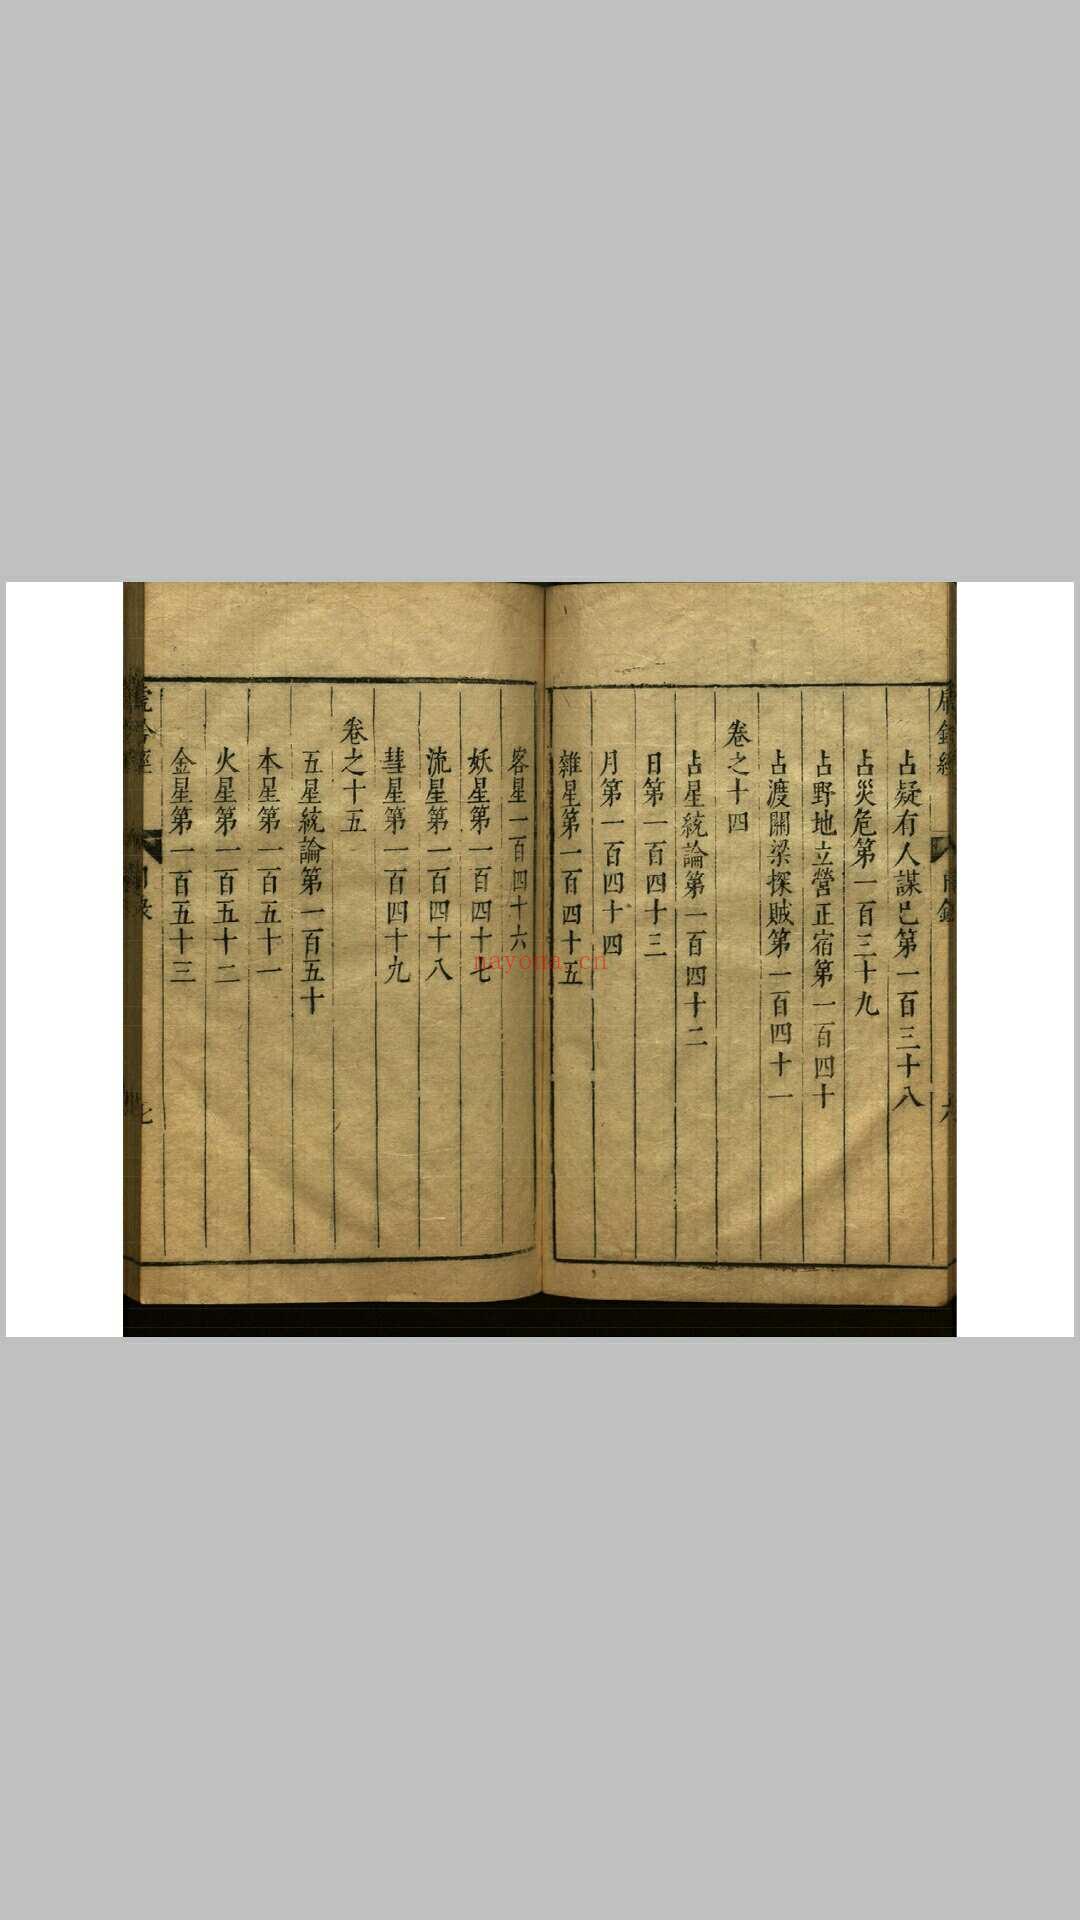 占疑有人謀已第一百三十八
占災危第一百三十九
占野地立營正宿第一百四十
占渡關梁探賊第一百四十一
卷之十四
占星統論第一百四十二
日第一百四十三
月第一百四十四
雜星第一百四十五
客星一百四十六
妖星第一百四十七
流星第一百四十八
彗星第一百四十九
卷之十五
五星統論第一百五十
木星第一百五十一
火星第一百五十二
金星第一百五十三
七
nayona.cn